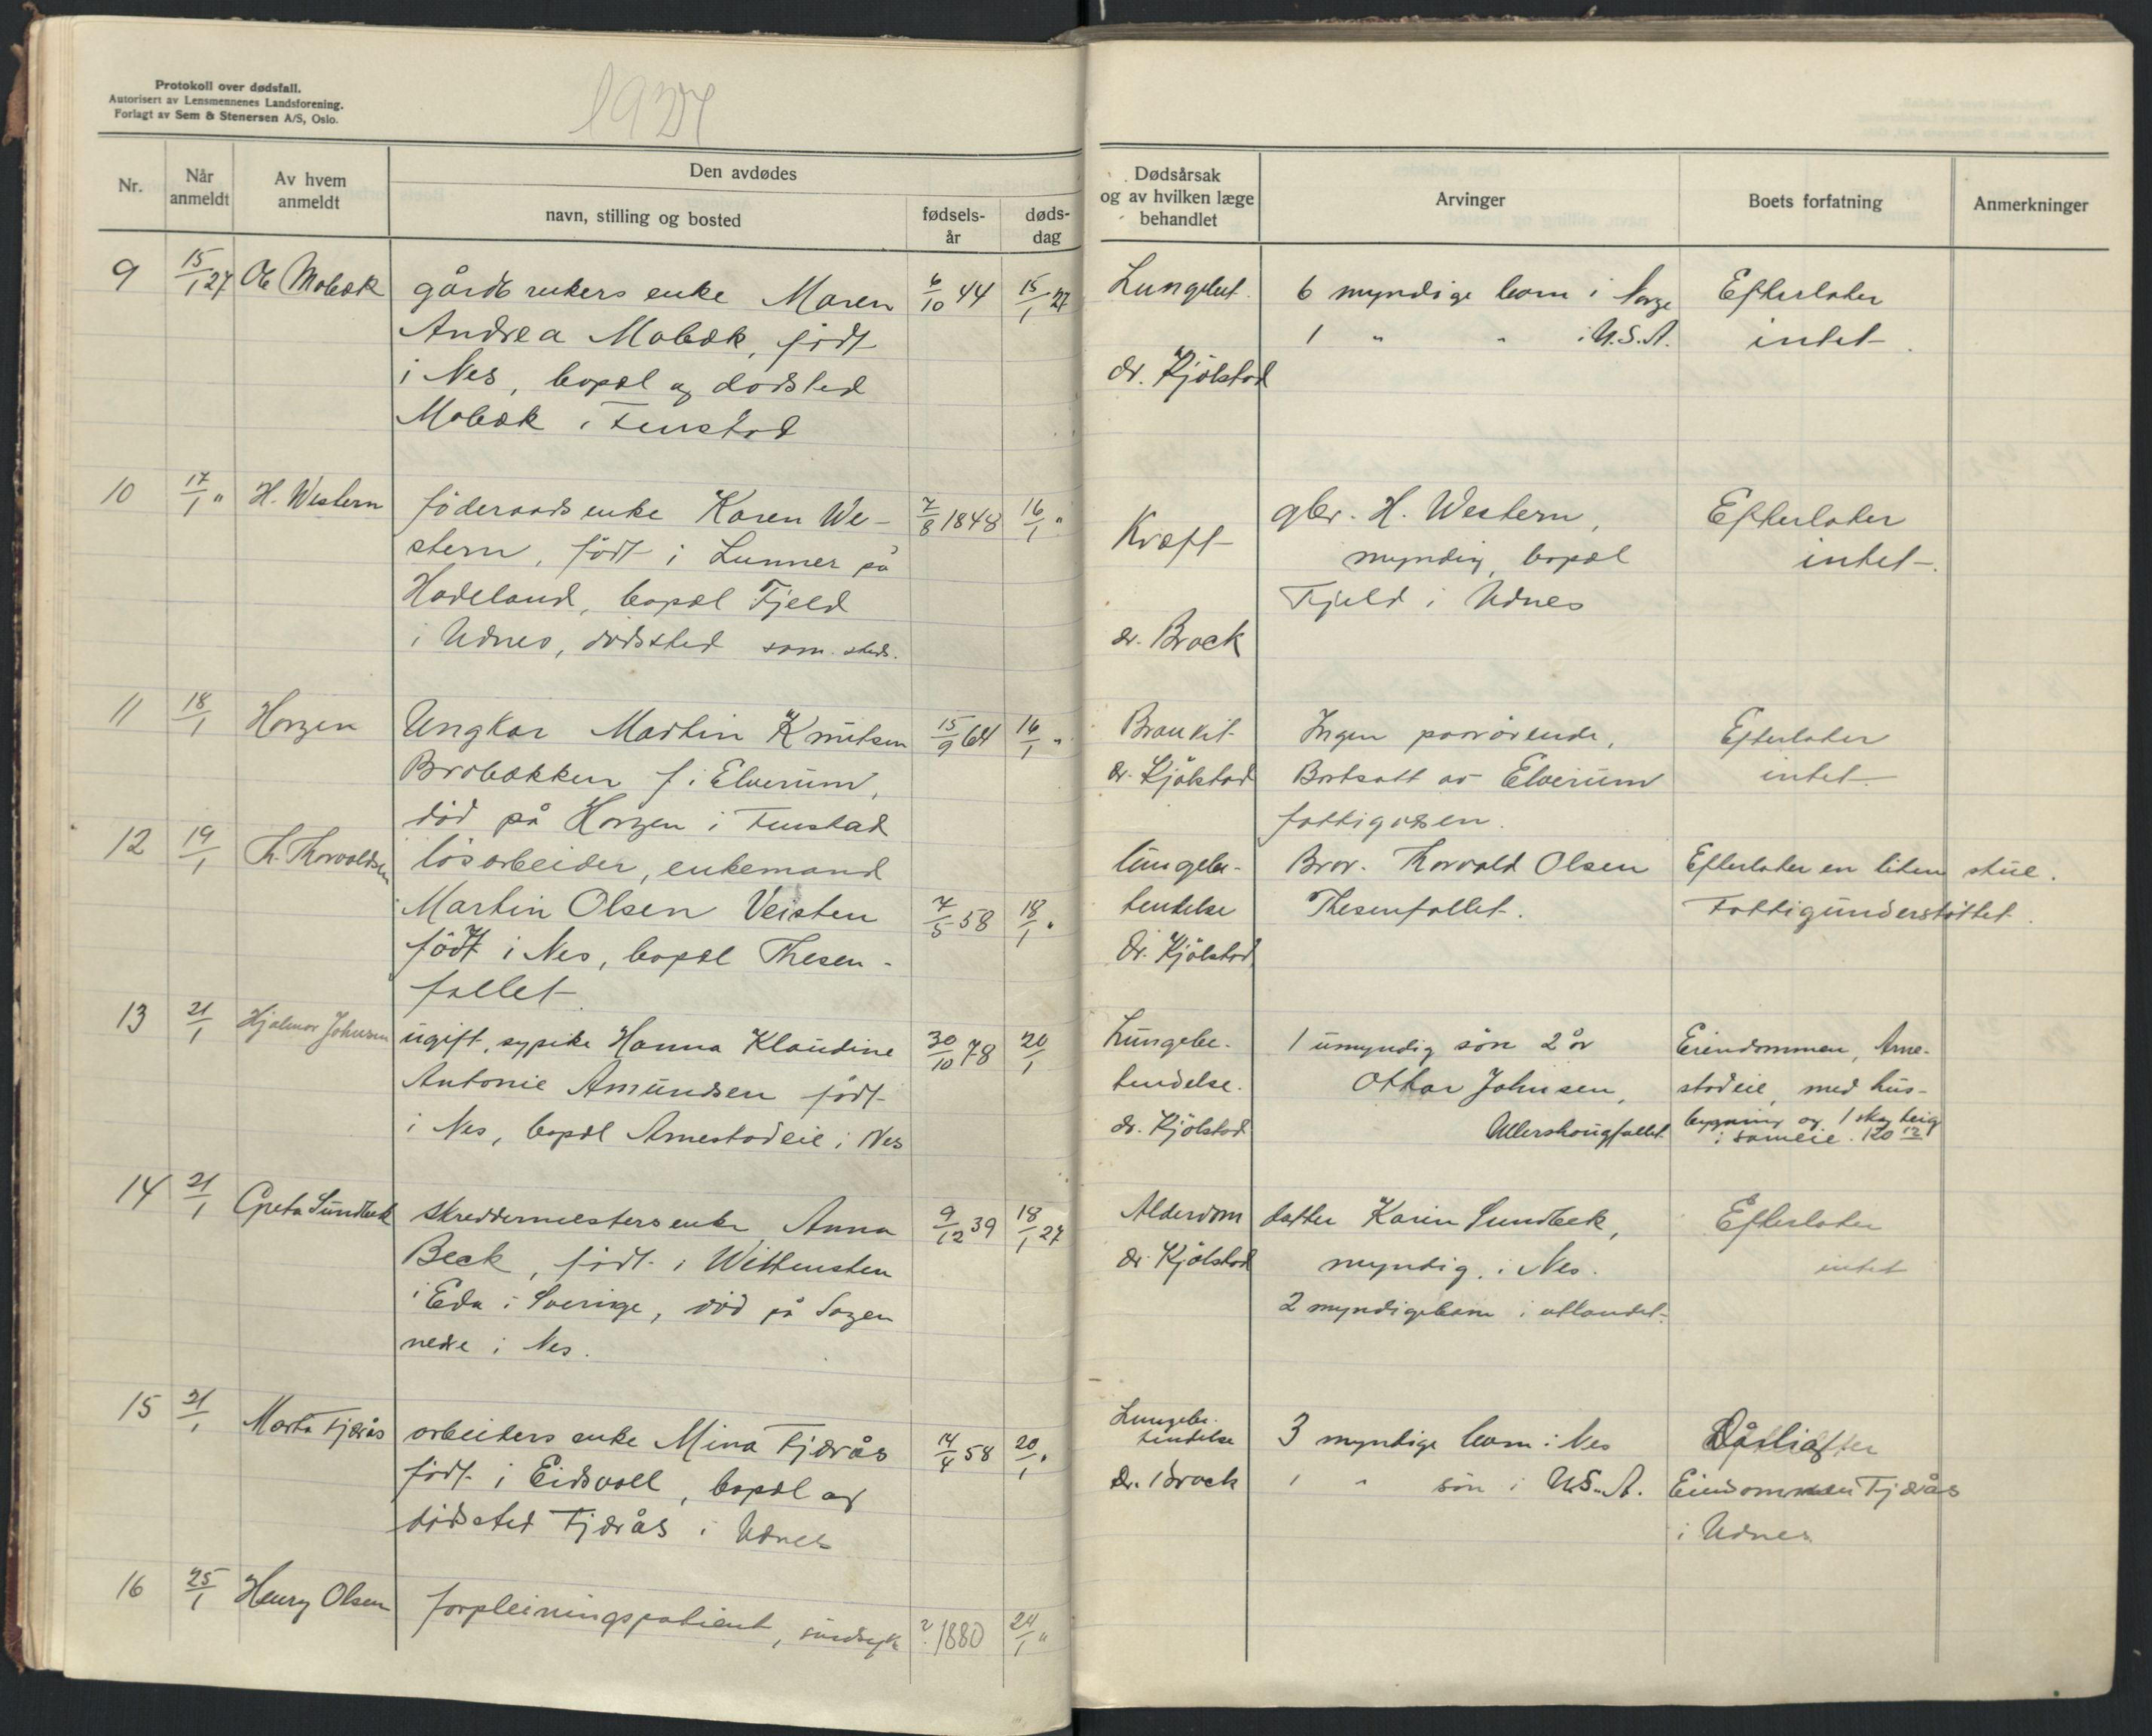 Protokoll over dødsfall.
Autorisert av Lensmennenes Landsforening.
Forlagt av Sem & Stenersen A/S, Oslo.
1927
Nr.
Når
anmeldt
Av hvem
anmeldt
Den avdødes
navn, stilling og bosted
fødsels-
år
døds-
dag
Dødsårsak
og av hvilken læge
behandlet
Arvinger
Boets forfatning
Anmerkninger
9 15/1 27 Ole Mobæk gårdbrukers enke Maren 6/10 44 15/1 27
Andrea Mobæk, født
i Nes, bopæl og dødsted
Mobæk i Fenstad
Lungebet. 6 myndige barn i Norge Efterlater
1 " " i U.S.A. intet.
dr. Kjølstad
10 17/1 " H. Western föderaads enke Karen We- 7/8 1848 16/1 "
stern, født i Lunner på
Hadeland, bopæl Fjeld
i Udnes, dødsted sam. steds.
Kræft gbr. H. Western, Efterlater
myndig, bopæl intet.
Fjeld i Udnes
dr. Brock
11 18/1 Horgen Ungkar Martin Knutsen 15/9 64 16/1 "
Brobækken f. i Elverum,
død på Horgen i Fenstad
Bronkit Ingen paarörende, Efterlater
dr. Kjølstad Bortsatt av Elverum intet
fattigvæsen.
12 19/1 Th. Thorvaldsen løsarbeider, enkemand
Martin Olsen Veisten 7/5 58 18/1 "
født i Nes, bopæl Thesen-
fallet
lungebe- Bror. Thorvald Olsen Efterlater en liten stue.
tendelse Thesenfallet. Fattigunderstöttet.
Dr. Kjølstad
13 21/1 Hjalmar Johnsen ugift, sypike Hanna Klaudine 30/10 78 20/1
Antonie Amundsen født
i Nes, bopæl Arnestadeie i Nes
Lungebe- 1 umyndig sön 2 år Eiendommen, Arne-
tendelse. Ottar Johnsen, stadeie, med hus-
dr. Kjølstad Ullershougfallet bygning og 1 skog teig
i sameie. 120 12
14 21/1 Greta Sundbek Skreddermesters enke Anna 9/12 39 18/1 27
Beck, født i Wittensten
i Eda i Sverige, död på Sagen
nedre i Nes.
Alderdom datter Karin Sundbek, Efterlater
dr. Kjølstad myndig, i Nes. intet
2 myndige barn i utlandet.
15 21/1 Marta Fjærås arbeiders enke Mina Fjærås 14/4 58 20/1 "
født i Eidsvoll, bopæl og
dödsted Fjærås i Udnes
Lungebe-
tendelse 3 myndige barn i Nes
Dr. Brock 1 " sön i U.S.A. Eiendommen Fjærås
i Udnes
16 25/1 Henry Olsen forpleiningspatient, sindsyk ? 1880 24/1 "